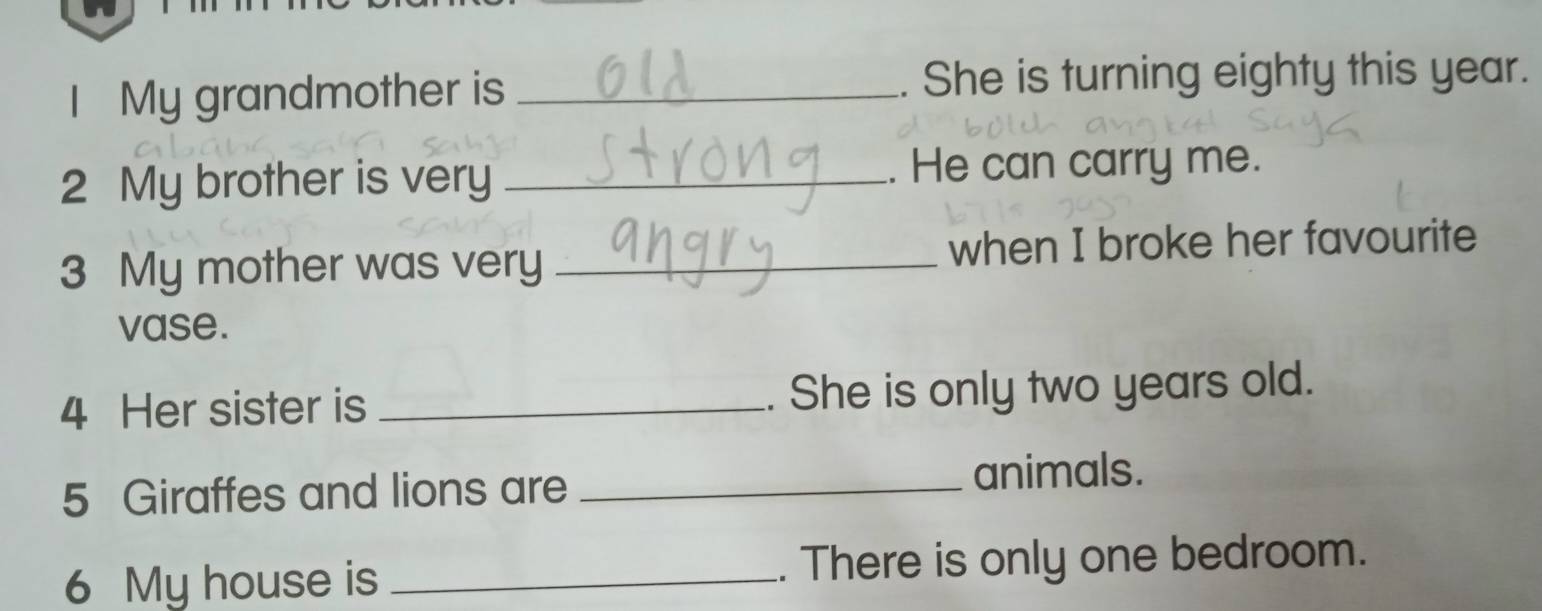 1 My grandmother is old. She is turning eighty this year.
abang sangat dia boleh angkat saya
2 My brother is very strong. He can carry me.
3 My mother was very angry when I broke her favourite
vase.
4 Her sister is ____. She is only two years old.
5 Giraffes and lions are ____ animals.
6 My house is ____. There is only one bedroom.